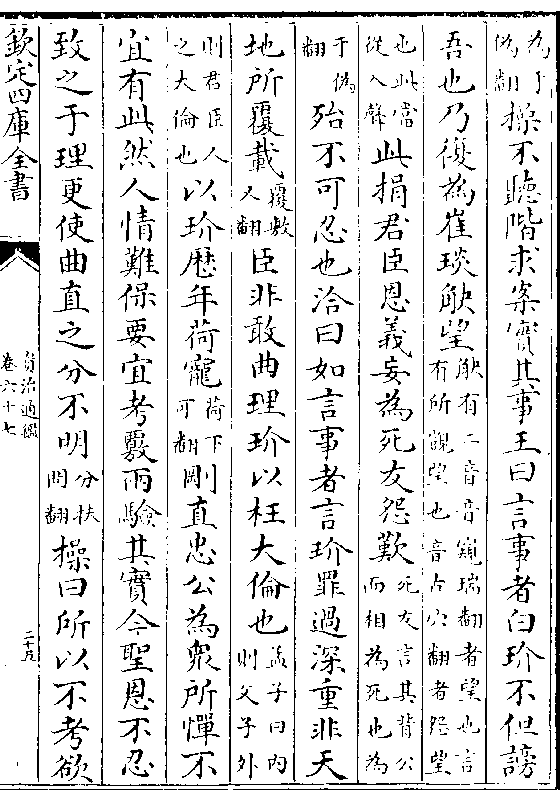 為于偽翻操不聽階求案實其事王曰言事者白玠不但謗
吾也乃復為崔琰觖望觖有二音音窺瑞翻者望也言有所覬望也音古穴翻者怨望
也此當從入聲此捐君臣恩義妄為死友怨歎死友言其背公而相為死也為
于偽翻殆不可忍也洽曰如言事者言玠罪過深重非天
地所覆載覆敷又翻臣非敢曲理玠以枉大倫也孟子曰内則父子外
則君臣人之大倫也以玠歷年荷寵荷下可翻剛直忠公為衆所憚不
宜有此然人情難保要宜考覈兩驗其實今聖恩不忍
致之于理更使曲直之分不明分扶問翻操曰所以不考欲
欽定四庫全書
資治通鑑
卷六十七
二十五